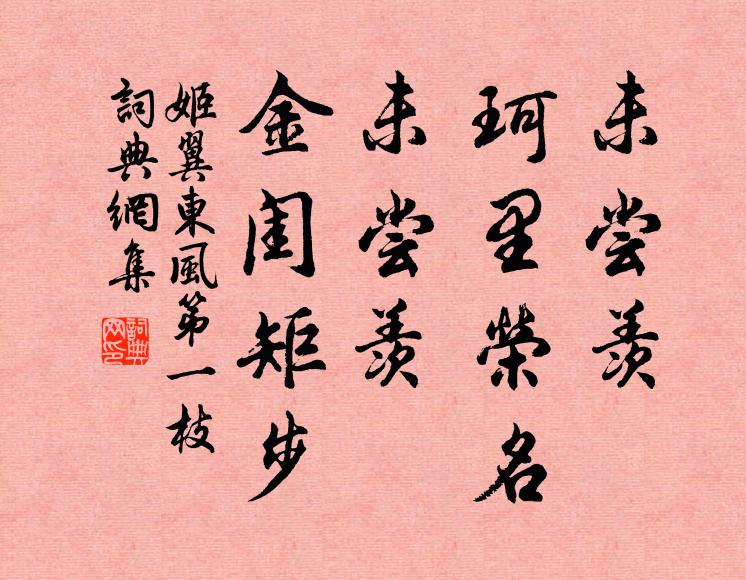 未尝羡
珂里榮名
未尝羡
金闺矩步
姬翼東風第一枝
詞典網集
詞典網印